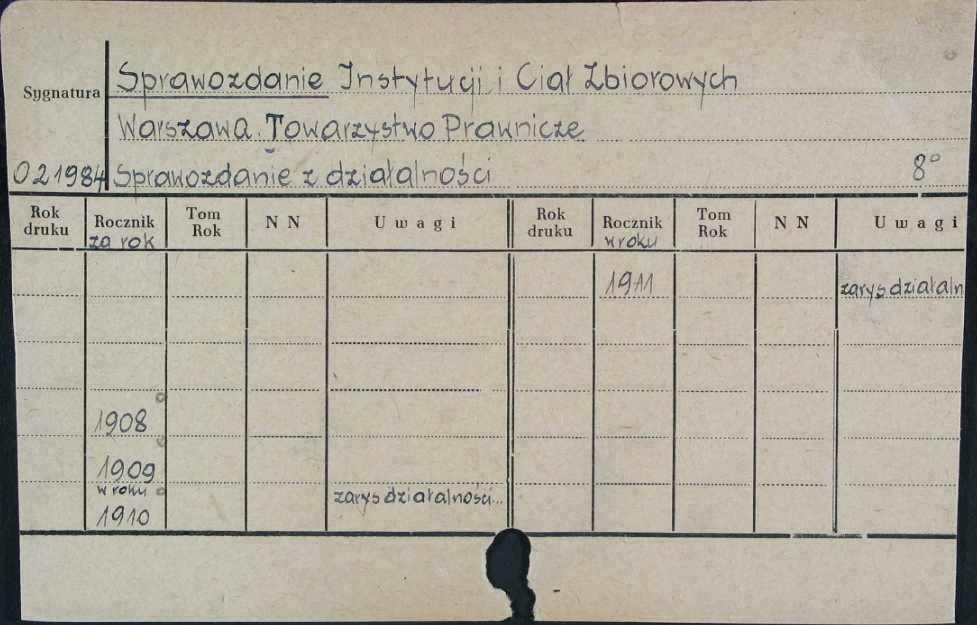 Sprawozdanie Instytucji i Ciał Zbiorowych
Sygnatura
Warszawa. Towarzystwo Prawnicze
021984 Sprawozdanie z działalności 8°
Rok druku Rocznik za rok Tom Rok N N Uwagi Rok druku Rocznik w roku Tom Rok N N Uwagi
1911 zarys działaln
1908
1909
w roku zarys działalności...
1910